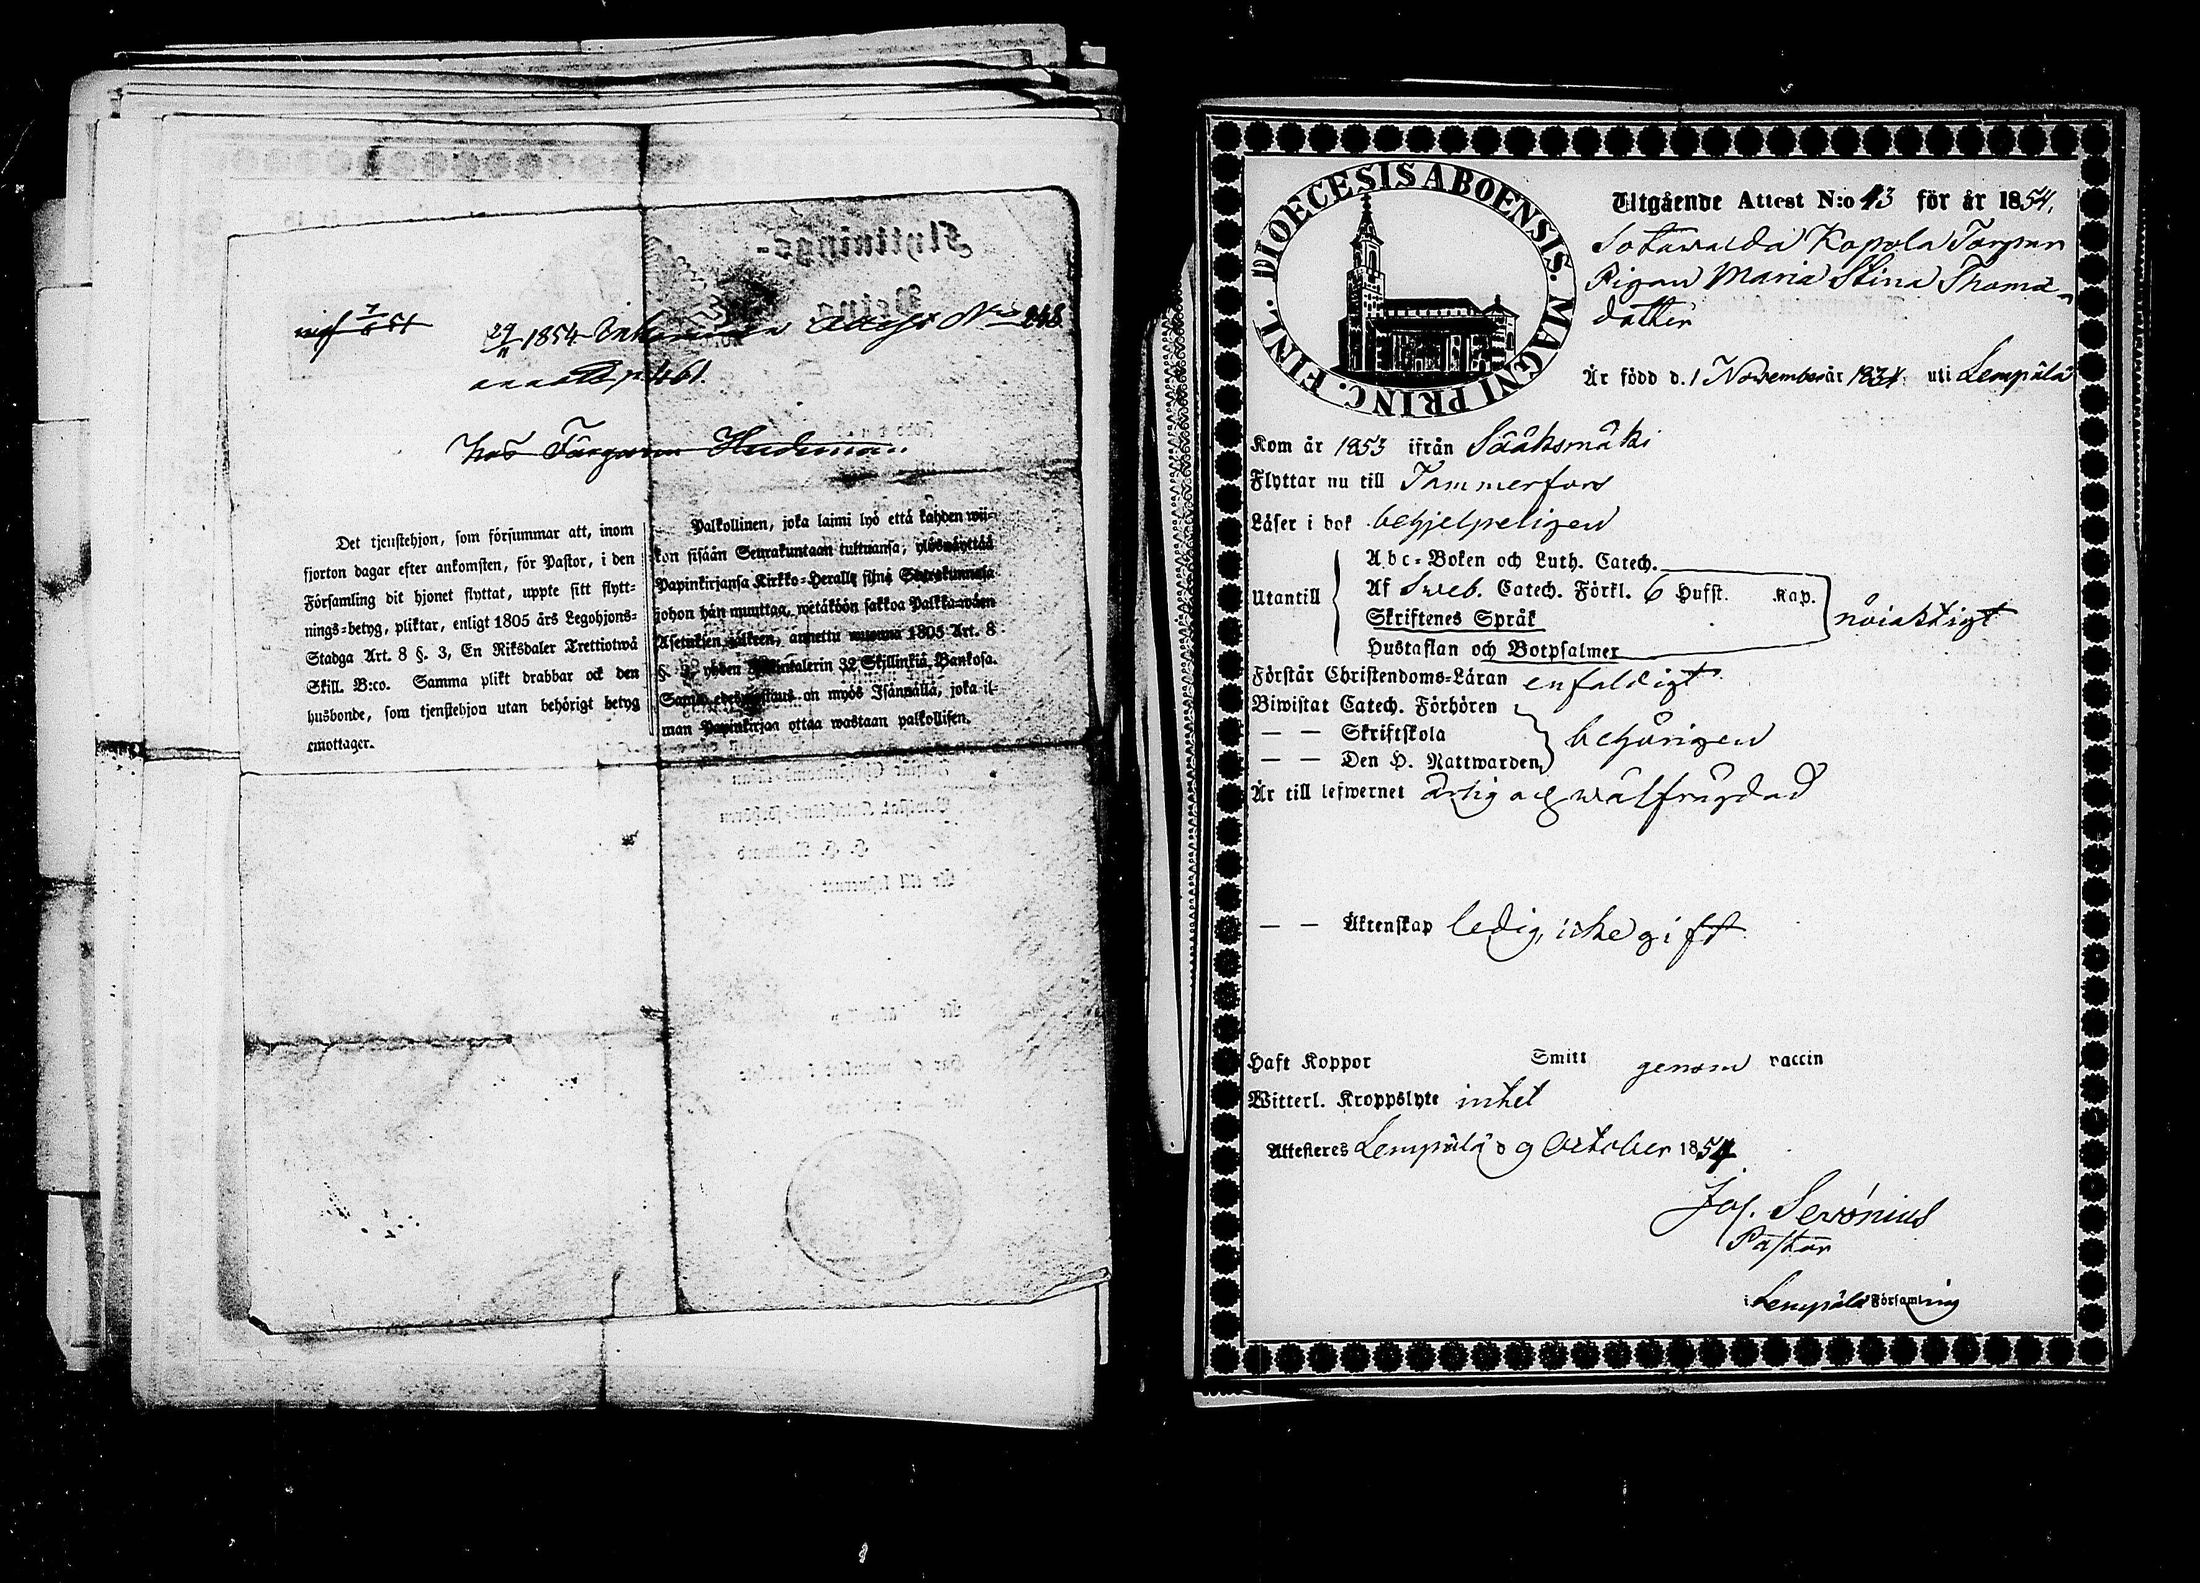 29/11 1854 Attest No 248
p. 461.
hos Färgaren
Det tjenstehjon, som försummar att, inom
fjorton dagar efter ankomsten, för Pastor, i den
Församling dit hjonet flyttat, uppte sitt flytt-
nings-betyg, pliktar, enligt 1805 års Legohjons-
Stadga Art. 8 §. 3, En Riksdaler Trettiotwå
Skill. B:co. Samma plikt drabbar ock den
husbonde, som tjenstehjon utan behörigt betyg
emottager.
Palkollinen, joka laimi lyö että kahden wii-
kon sisään Seurakuntaan tultuansa, ylösnäyttää
Papinkirjansa Kirkko-Herralle siinä Seurakunnasa
johon hän muuttaa, wetäköön sakkoa Palkka-wäen
Asetuksen jälkeen, annettu wuonna 1805 Art. 8
§. 3, yhden Riksintalerin 32 Skillinkiä Bankosa.
Sama edeswastaus on myös Isännällä, joka il-
man Papinkirjaa ottaa wastaan palkollisen.
Flyttnings-
Betyg
DIOECESIS ABOENSIS. MAGNI PRINC. FINL.
Utgående Attest N:o 43 för år 1854.
Sotawalda Koppola Torpar
Pigan Maria Stina Thomas-
dotter
Är född d. 1 November år 1834. uti Lempälä
Kom år 1853 ifrån Sääksmäki
Flyttar nu till Tammerfors
Läser i bok behjelpeligen
Utantill
Abc-Boken och Luth. Catech.
Af Sweb. Catech. Förkl. 6 Hufst. Kap.
Skriftenes Språk
Hustaflan och Botpsalmer
nöjaktigt
Förstår Christendoms-Läran enfaldigt
Biwistat Catech. Förhören
— — Skriftskola
— — Den H. Nattwarden
behörigen
Är till lefwernet ärlig och wälfrägdad
— — Äktenskap ledig, icke gift
Haft Koppor Smitt genom vaccin
Witterl. Kroppslyte intet
Attesteres Lempälä d 9 October 1854
Jos. Serónius
Pastor
i Lempälä Församling